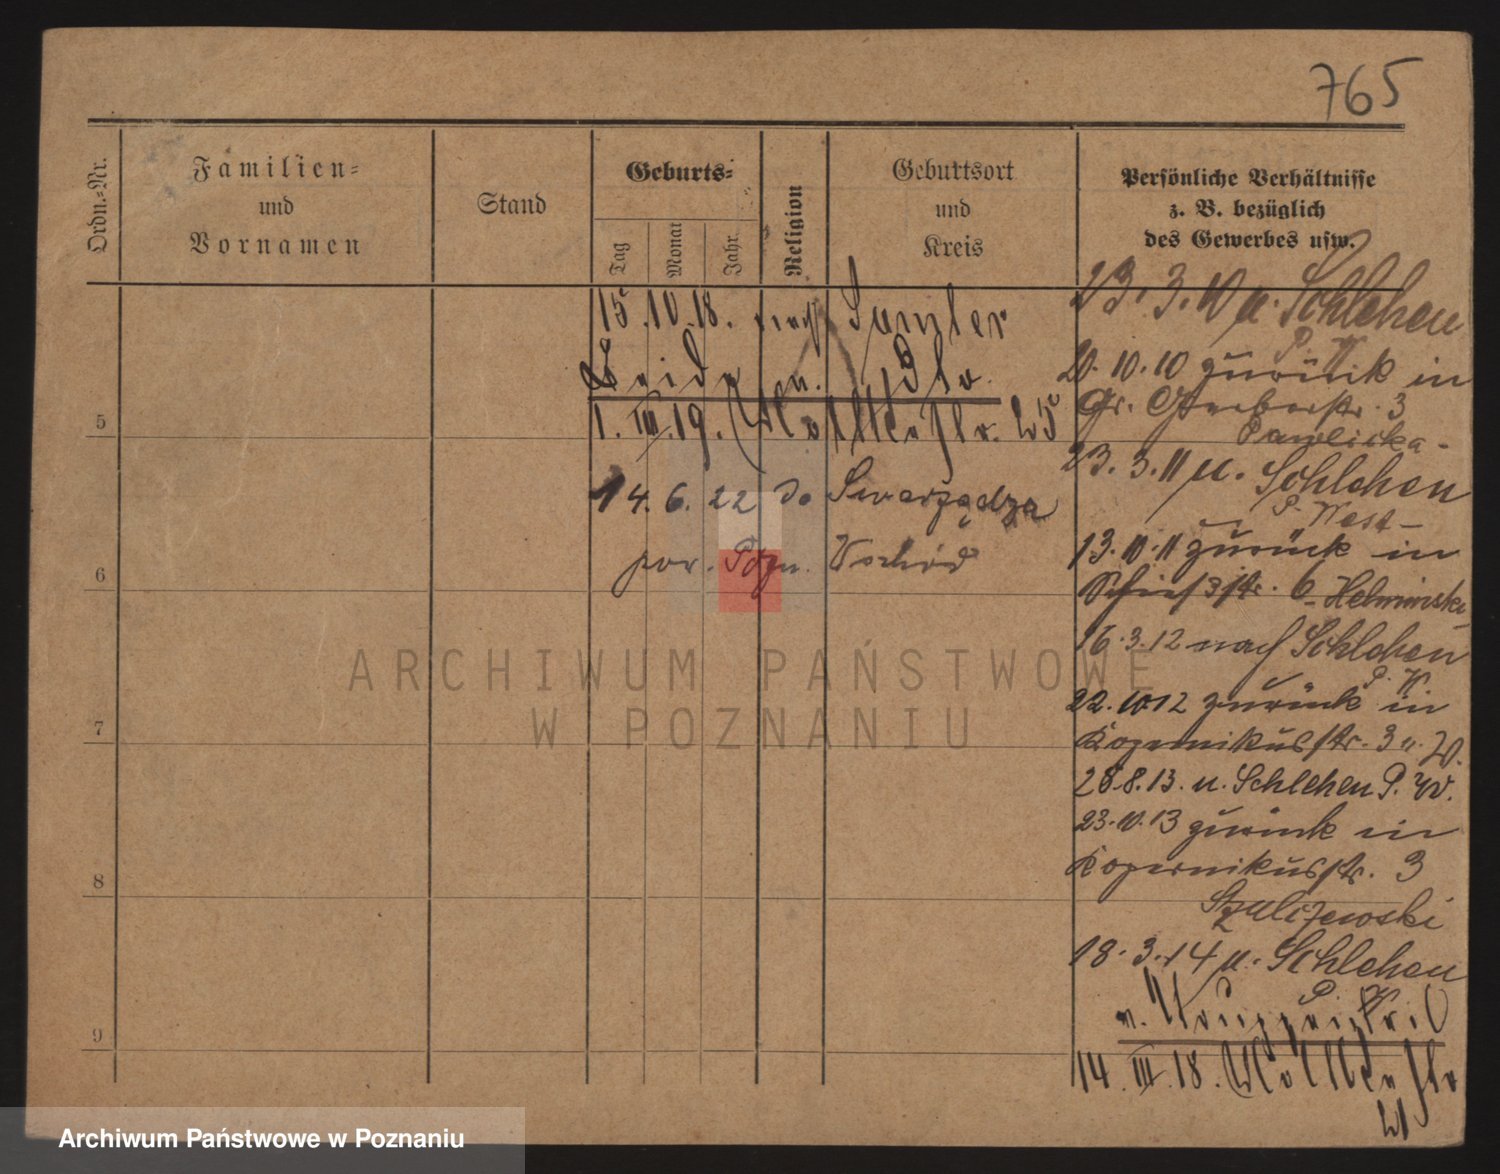 765
Ordn.-Nr.
Familien-
und
Vornamen
Stand
Geburts-
Tag
Monat
Jahr
Religion
Geburtsort
und
Kreis
Persönliche Verhältnisse
z. B. bezüglich
des Gewerbes usw.
15.10.18. nach
1. III. 19. 25
14. 6. 22 do Swarzędza
pow. Pozn. Wschód
5
6
7
8
9
23. 3. 10 u. Schlehen
P. W.
20. 10. 10 zurück in
Gr. Gerberstr. 3
Pawlicka-
23. 3. 11 u. Schlehen
P. West-
13. 10. 11 zurück in
6 Helminski
16. 3. 12 nach Schlehen
P. W.
22. 10 12 zurück in
Kopernikusstr. 3 u. W.
28.8.13. u. Schlehen P. W.
23. 10. 13 zurück in
Kopernikusstr. 3
Szulczewski
18. 3. 14 u. Schlehen
P. W.
14. III. 18.
ARCHIWUM PAŃSTWOWE
W POZNANIU
Archiwum Państwowe w Poznaniu